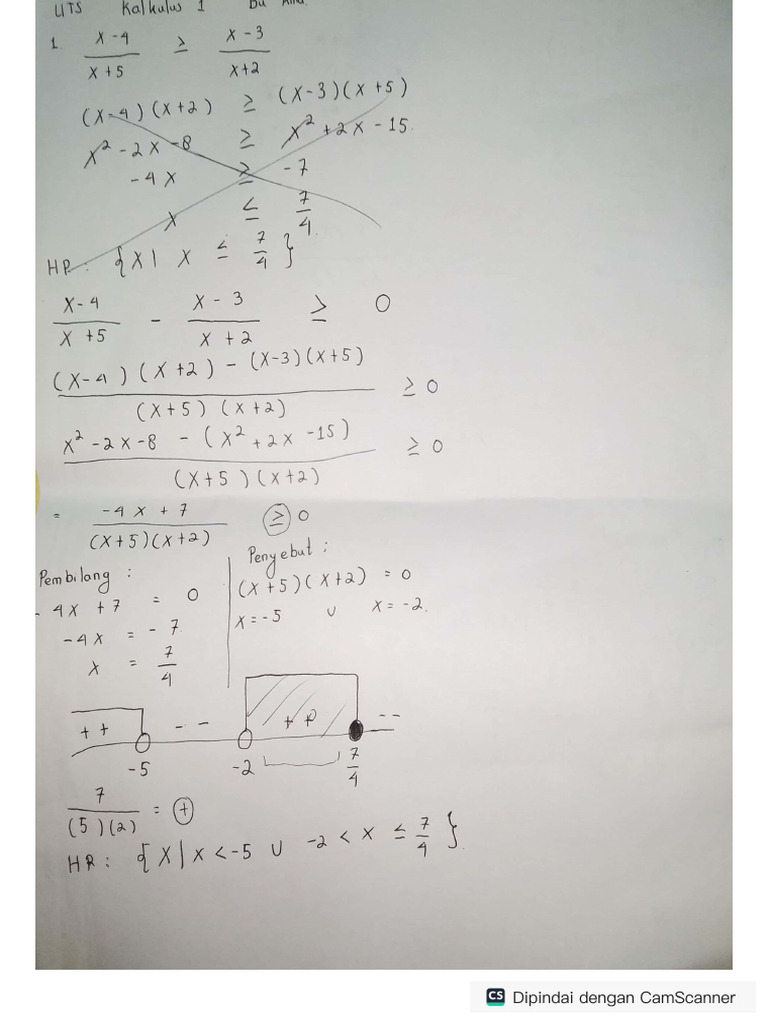 UTS Kalkulus 1 Bu
1. x-4/x+5 ≥ x-3/x+2
(x-4)(x+2) ≥ (x-3)(x+5)
x² -2x -8 ≥ x² +2x -15
-4x ≥ -7
x ≤ 7/4
HP: {x| x ≤ 7/4}
x-4/x+5 - x-3/x+2 ≥ 0
(x-4)(x+2) - (x-3)(x+5)/(x+5)(x+2) ≥ 0
x² -2x -8 - (x² +2x -15)/(x+5)(x+2) ≥ 0
= -4x + 7/(x+5)(x+2) ≥ 0
Pembilang:
-4x +7 = 0
-4x = -7
x = 7/4
Penyebut:
(x+5)(x+2) = 0
x=-5 ∪ x=-2.
++ -- ++ --
-5 -2 7/4
7/(5)(2) = +
HP: {x| x < -5 ∪ -2 < x ≤ 7/4}
CS Dipindai dengan CamScanner